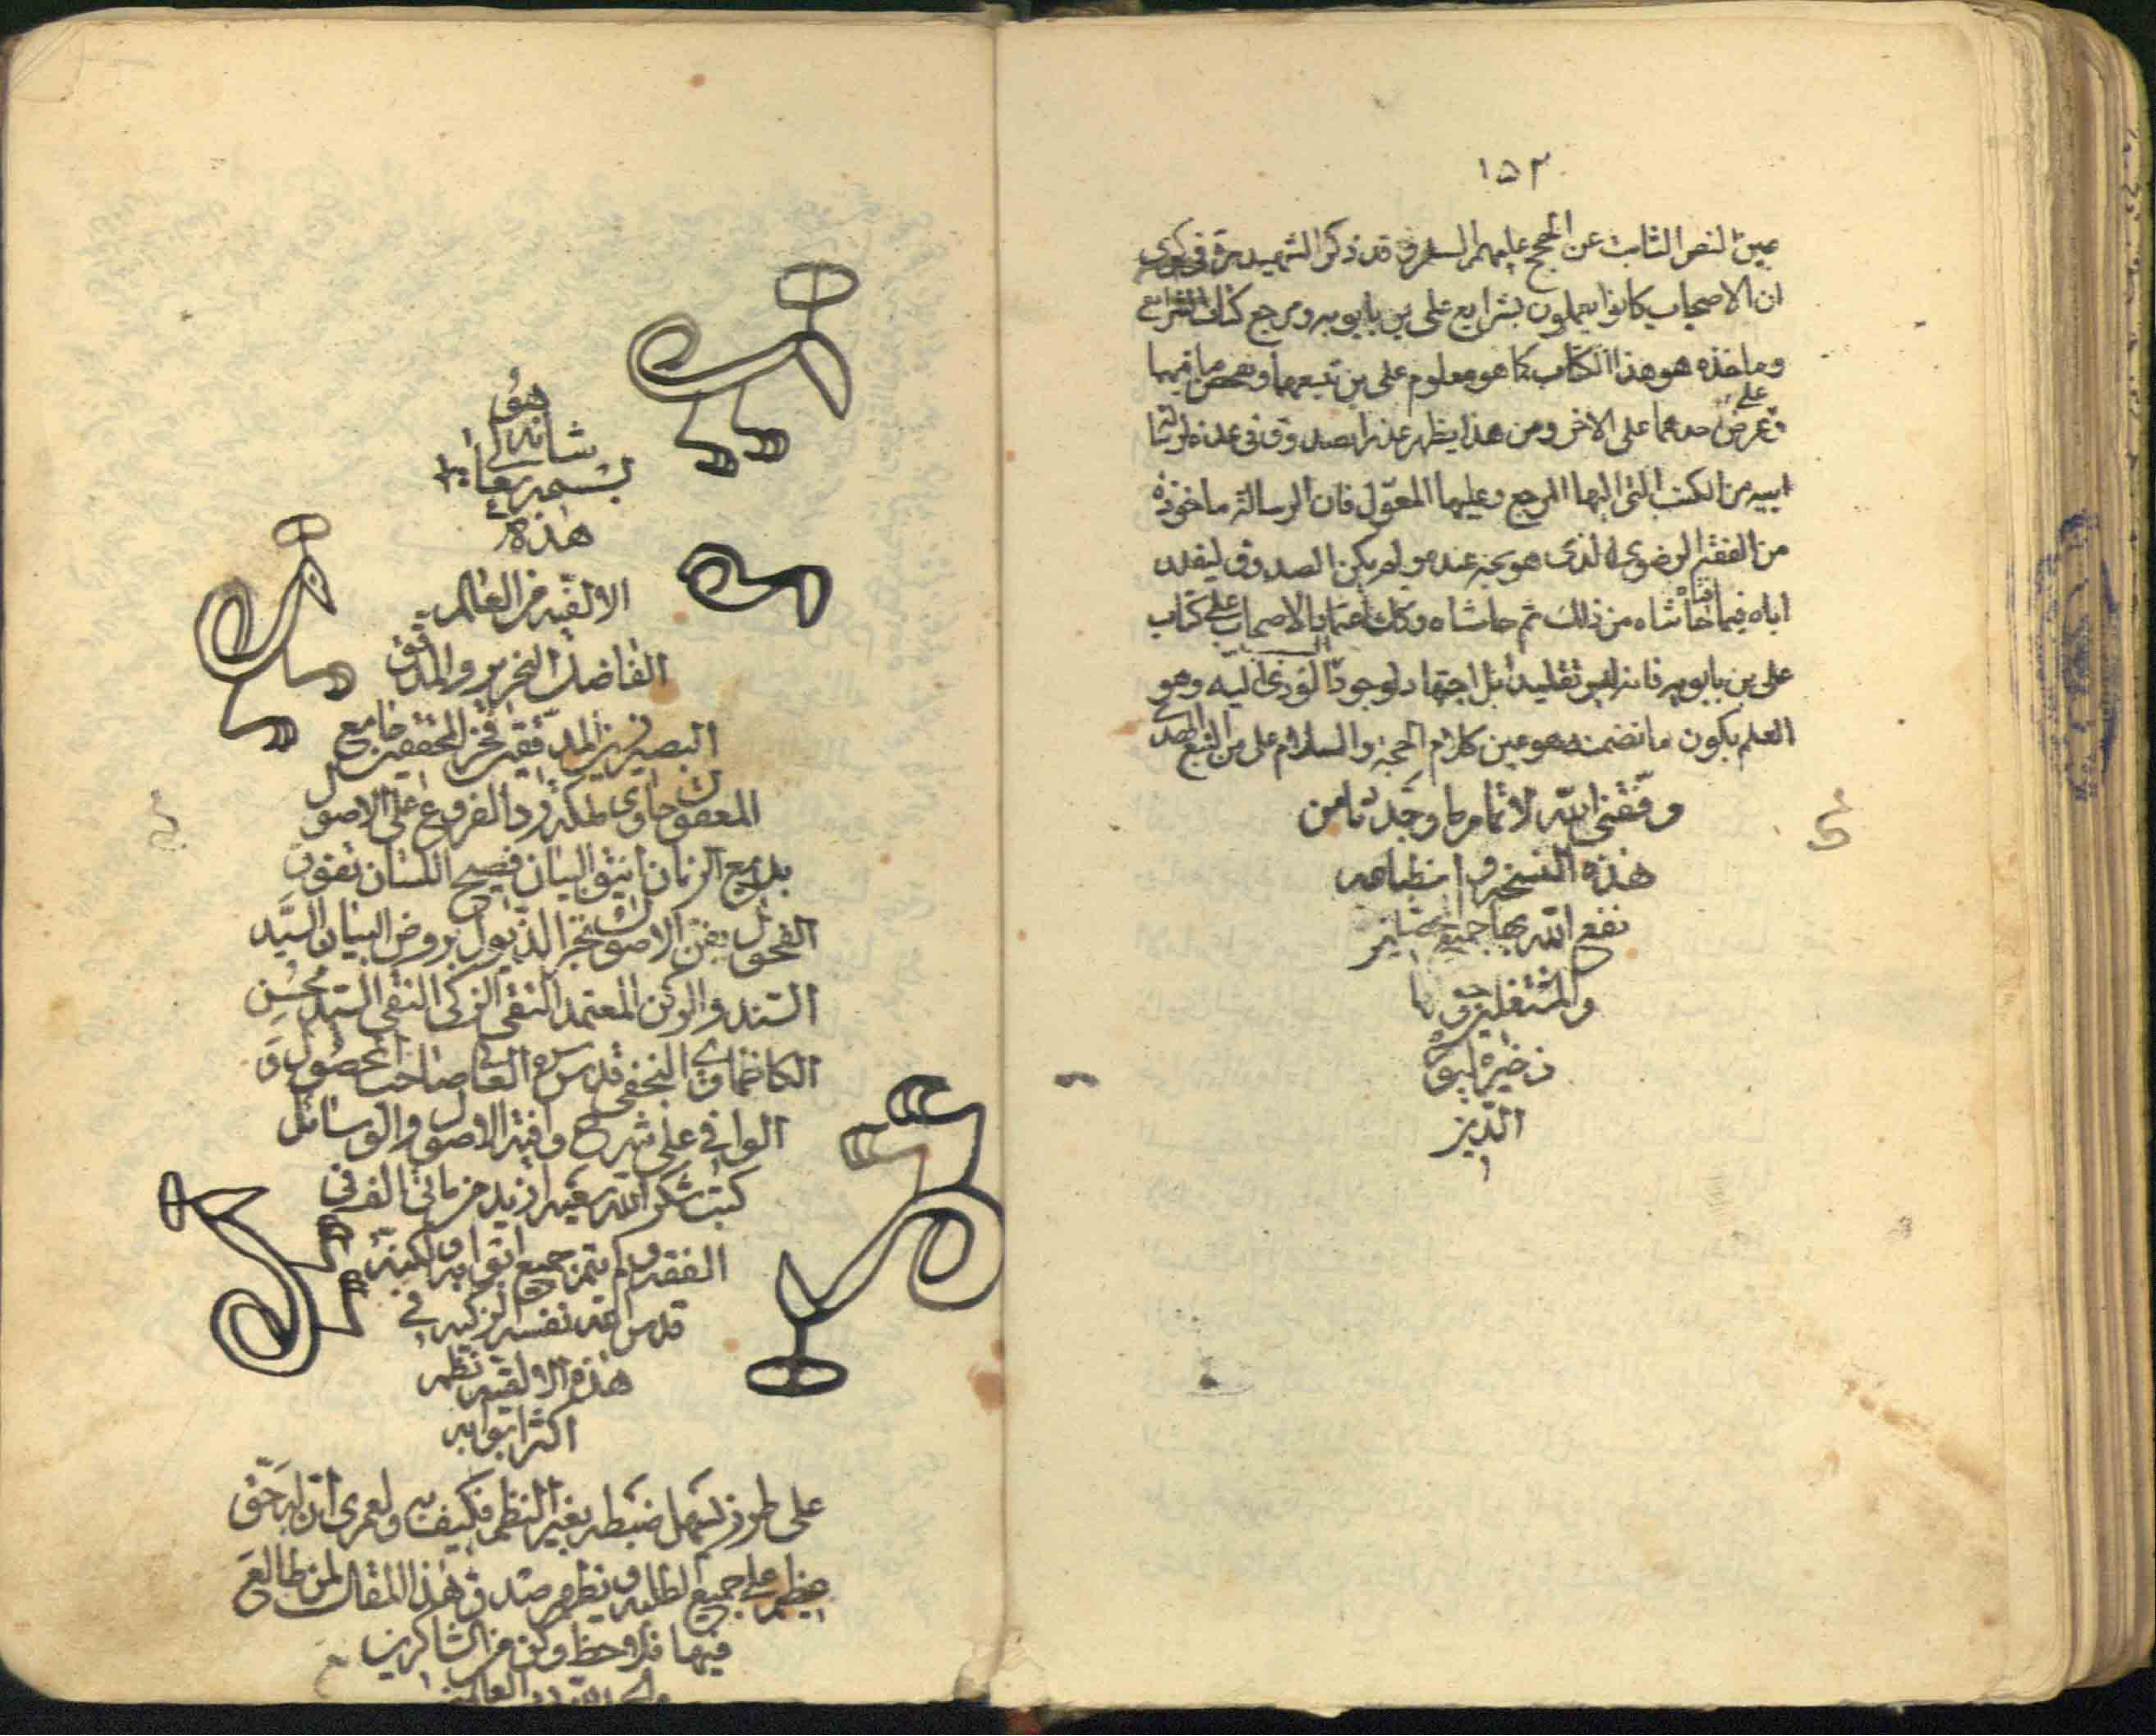 ١٥٢
عين النص الثابت عن الحجج عليهم السلم و قد ذكر الشهيد ره في
ان الاصحاب كانوا يعملون بشرايع علي بن بابويه ومرجع كتاب الشرايع
وماخذه هو هذا الكتاب كما هو معلوم على من تتبعهما وتفحص ما فيها
وعرض احدهما على الاخر ومن هذا يظهر عذر الصدوق في عده لرسالة
على
ابيه من الكتب التى اليها المرجع وعليها المعوّل فان الرسالة ماخوذة
من الفقه الرضوي الذى هو حجة عنده ولم يكن الصدوق ليقلد
اباه فيما حاشاه من ذلك ثم حاشاه وكذلك اعتماد الاصحاب على كتاب
علي بن بابويه فانه ليس تقليدا بل اجتهاد لوجود المؤدى اليه وهو
العلم بكون ما تضمنه هو عين كلام الحجة والسلام على من اتبع الهدى
وفّقني الله لاتمام ما وجدنا من
هذه النسخة و انطباعه
نفع الله بها جميع
والمشتغلين و
ذخيرة ليوم
الدين
هو
شانه
بسمه تعالى
هذه
الالفية من العالم
الفاضل النحرير والمدقق
البصير زين المدققين فخر المحققين جامع
المعقول حاوى رد الفروع على الاصول
بديع الزمان انيق البيان فصيح اللسان تفوق
الفحول بفن الاصول تجر الذيول بروض البيان السيّد
السند والركن المعتمد التقى الزكى النقى السيد محسن
الكاظماوي النجفي قدس سره العالي صاحب المحصول و
الوافي على شرح وافية الاصول والوسائل
كتبت شكر الله سعيه ازيد من مائتى الف في
الفقه ولم يتم جميع ابوابه ولكنه
قدس نفسه الزكيه في
هذه الالفية نظم
اكثر ابوابه
على طرز يسهل ضبطه بغير النظم فكيف به ولعمري ان له حق
عظيم على جميع الطلبه ويظهر صدق هذا المقال لمن طالع
فيها فلاحظ وكن من الشاكرين